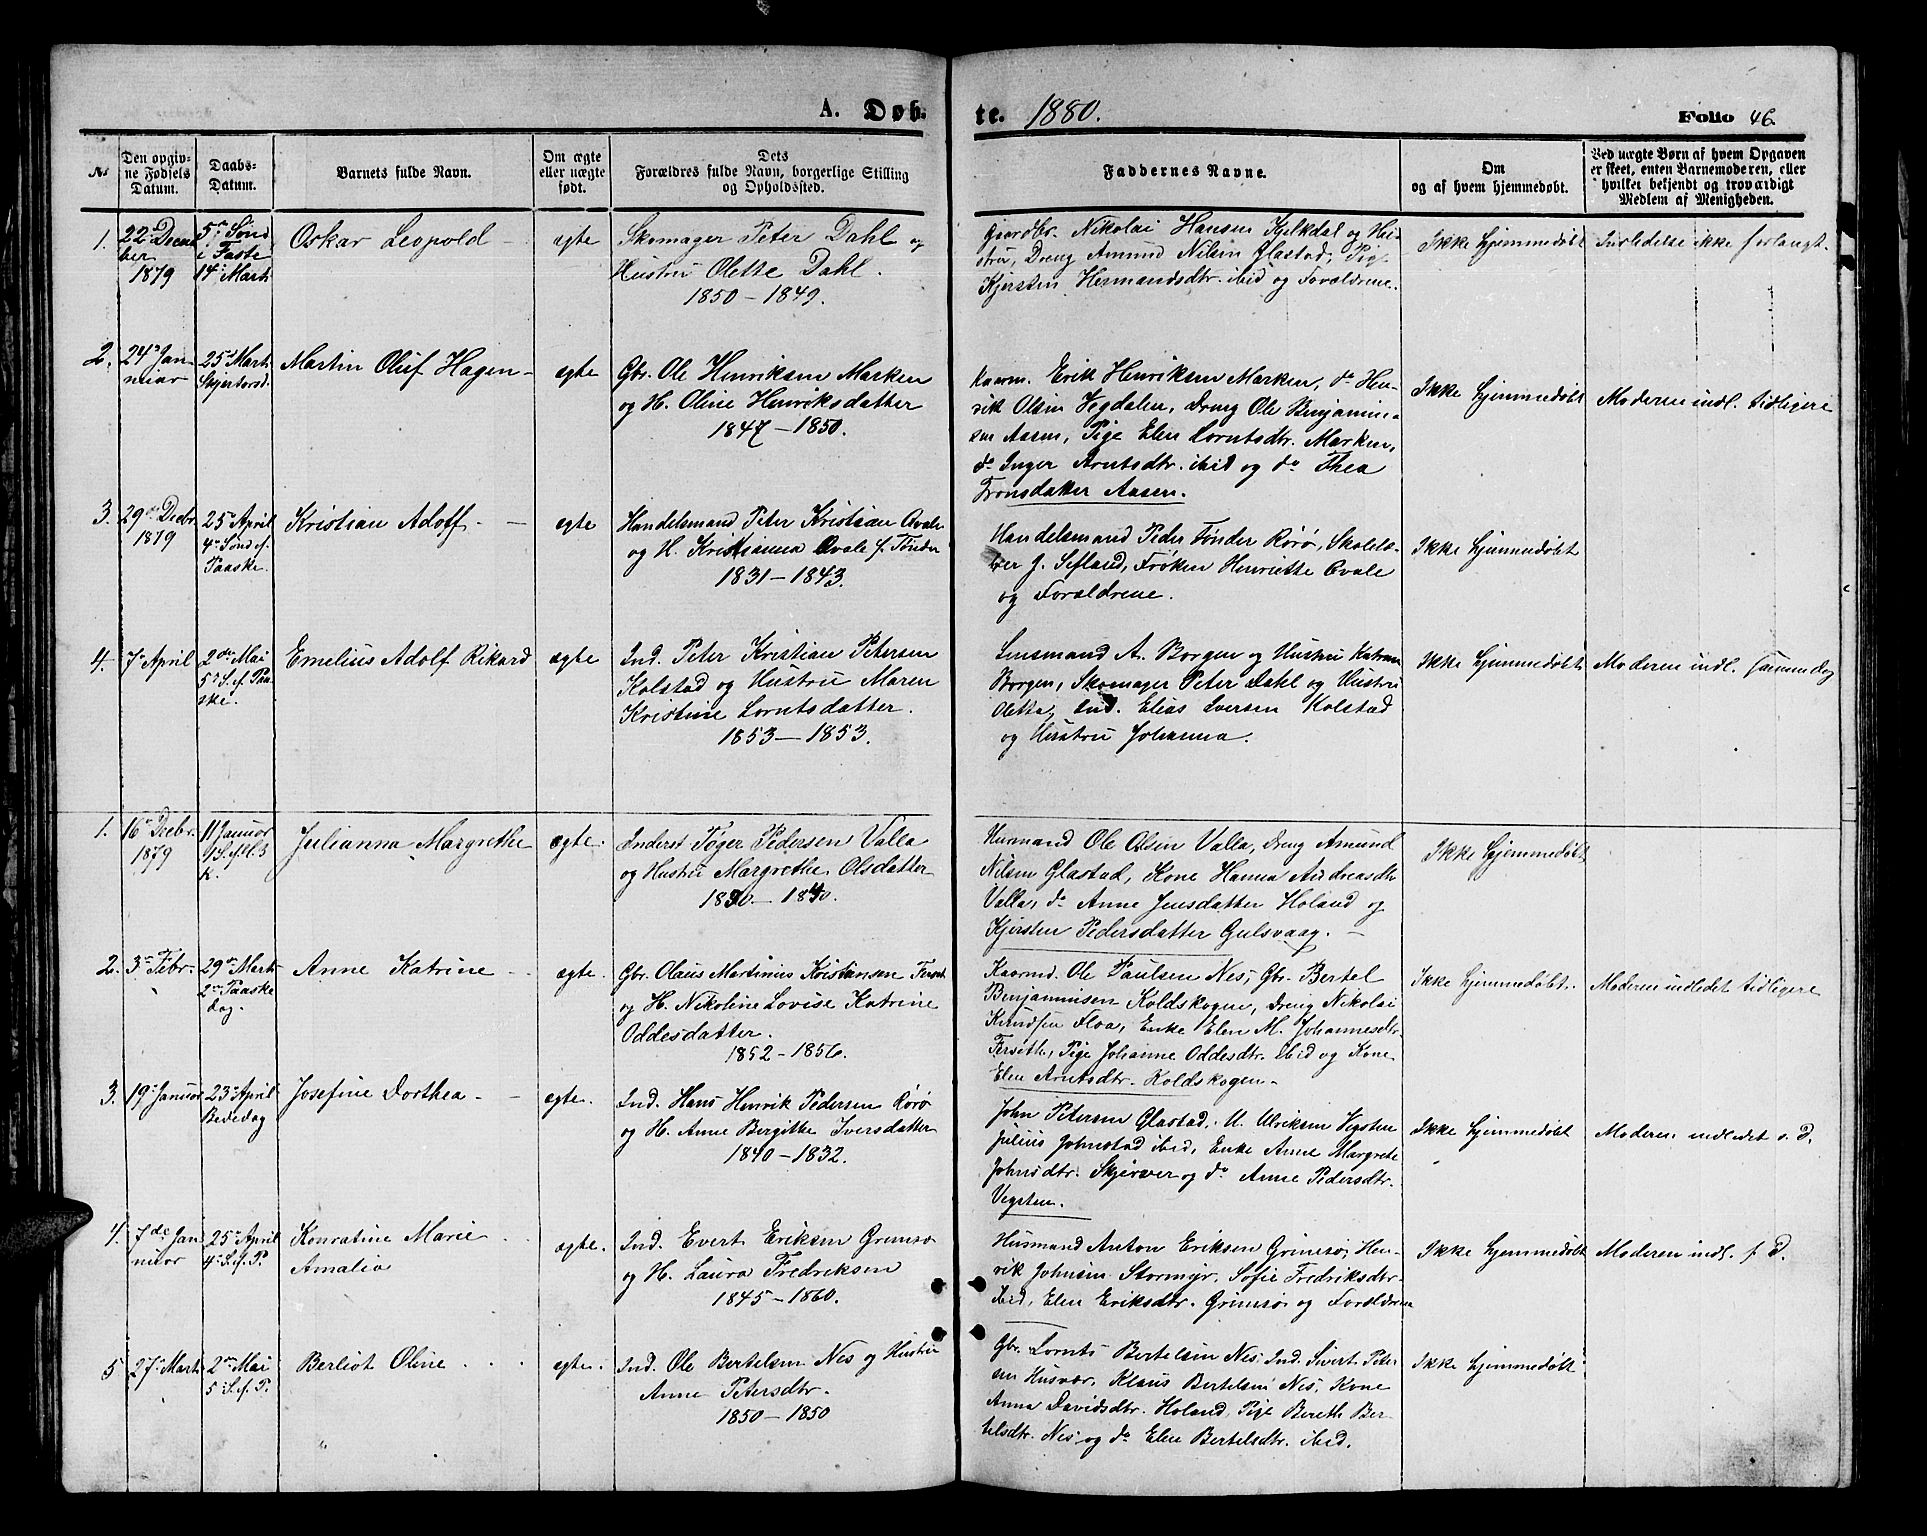 A. Døb-
te. 1880.
Folio 46.
No
Den opgiv-
ne Fødsels
Datum.
Daabs-
Datum.
Barnets fulde Navn.
Om ægte
eller uægte
født.
Dets
Forældres fulde Navn, borgerlige Stilling
og Opholdssted.
Faddernes Navne.
Om
og af hvem hjemmedøbt.
Ved uægte Børn af hvem Opgaven
er skeet, enten Barnemoderen, eller
hvilket bekjendt og troværdigt
Medlem af Menigheden.
1.
22 Decem
ber
1879
5te Sønd
i Faste
14 Marts
Oskar Leopold
ægte
Skomager Peter Dahl og
Hustru Olette Dahl.
1850 - 1849.
Gaardbr. Nikolai Hansen Kjelkdal og Hu-
stru, Dreng Amund Nilsen Glastad, Pige
Kjersten Hermandsdtr. ibid og Forældrene.
Ikke hjemmedøbt
Indledelse ikke forlangt.
2.
24de Jan
uuar
25 Marts
Skjertorsd.
Martin Oluf Hagen
ægte
Gbr. Ole Henriksen Marken
og H. Oline Henriksdatter
1847 - 1850.
Kaarm. Erik Henriksen Marken, do Hen-
rik Olsen Vegdalen, Dreng Ole Benjamin-
sen Aasen, Pige Elen Lorntsdtr. Marken,
do Inger Arntsdtr. ibid og do Thea
Tronsdatter Aasen.
Ikke hjemmedøbt
Moderen indl. tidligere
3.
29de Decbr.
1879
25 April
4de Sønd ef.
Paaske.
Kristian Adolf
ægte
Handelsmand Peter Kristian Qvale
og H. Kristianna Qvale f. Tønder
1831 - 1843.
Handelsmand Peder Tønder Rørø, Skolelæ-
rer J. Sefland, Frøken Henriette Qvale
og Forældrene.
Ikke hjemmedøbt
4.
7de April
2den Mai
5te S. ef. Paa-
ske.
Emelius Adolf Rikard
ægte
Ind. Peter Kristian Petersen
Kolstad og Hustru Maren
Kristine Lorntsdatter.
1853 - 1853.
Lensmand A. Borgen og Hustru Katrine
Borgen, Skomager Peter Dahl og Hustru
Olette, Ind. Elias Iversen Kolstad
og Hustru Johanna.
Ikke hjemmedøbt
Moderen indl. samme dag
1.
16de Decbr.
1879
11 Januar
Julianna Margrethe
ægte.
Inderst Tøger Pedersen Valla
og Hustru Margrethe Olsdatter
1830 - 1840.
Husmand Ole Olsen Valla, Dreng Amund
Nilsen Glastad, Kone Hanna Andreasdtr
Valla, do Anne Jensdatter Holand og
Kjersten Pedersdatter Gulsvaag.
Ikke hjemmedøbt
2.
3de Febr.
29de Marts
2den Paaske
dag.
Anne Katrine
ægte.
Gbr. Olaus Martinius Kristiansen Forset
og H. Nikoline Lovise Katrine
Oddesdatter.
1852 - 1856.
Kaarmd. Ole Paulsen Nes, Gbr. Bertel
Benjaminsen Koldskogen, Dreng Nikolai
Knudsen Floa, Enke Elen M. Johannesdtr.
Forseth, Pige Johanne Oddesdtr. ibid og Kone
Elen Arntsdtr. Koldskogen.
Ikke hjemmedøbt.
Moderen indledet tidligere
3.
19de Januar
23de April
Bededag
Josefine Dorthea
ægte.
Ind. Hans Henrik Pedersen Rørø
og H. Anne Bergitte Iversdatter
1840 - 1832.
John Petersen Glastad, U. Ulriksen Vegsten
Julius Johnstad ibid, Enke Anne Margrete
Johnsdtr. Skjerver og do Anne Pedersdtr.
Vegsten.
Ikke hjemmedøbt
Moderen indledet s. D.
4.
7de Jan
nuar
25 April
4de S. ef. P.
Konratine Marie
Amalia
ægte.
Ind. Evert Eriksen Grimsø
og H. Laura Fredriksen
1845 - 1860.
Husmand Anton Eriksen Grimsø, Hen-
rik Johnsen Stormyr, Sofie Fredriksdtr.
ibid, Elen Eriksdtr. Grimsø og Forældrene
Ikke hjemmedøbt
Moderen indl. s. D.
5
27de Marts
2den Mai
5te S. ef. P.
Berliot Oline
ægte.
Ind. Ole Bertelsen Nes og Hustru
Anne Petersdtr.
1850 - 1850
Gbr. Lornts Bertelsen Nes, Ind. Sivert Peter-
sen Husvær, Klaus Bertelsen Nes, Kone
Anna Davidsdtr. Holand, Pige Bereth Ber-
telsdtr. Nes og do Elen Bertelsdtr. ibid.
Ikke hjemmedøbt